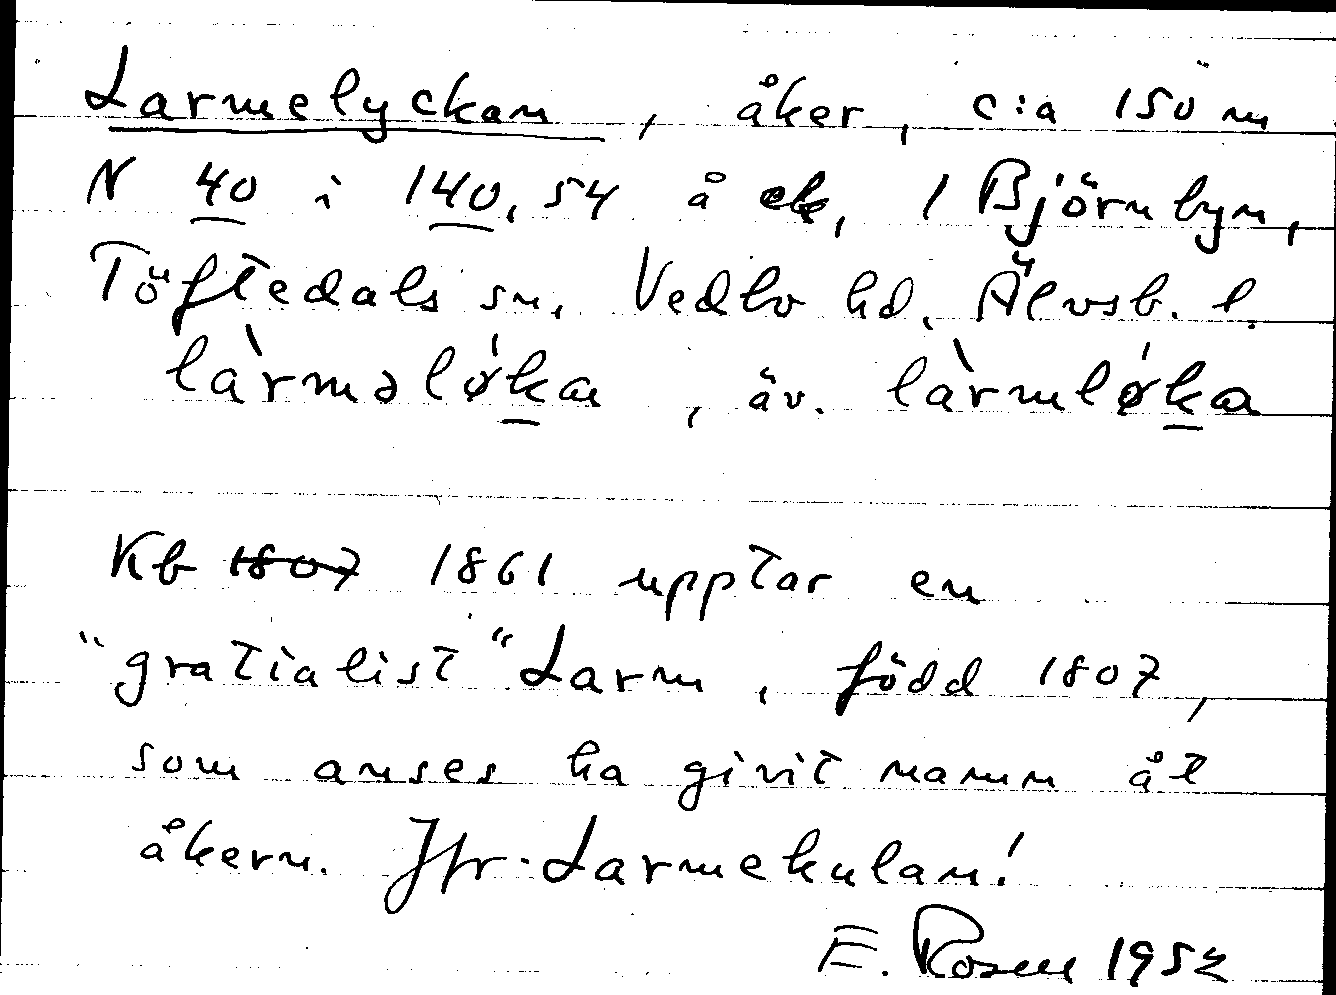 Larmelyckan, åker, c:a 150 m
N 40 i 140, 54 å ek, 1 Björnbyn,
Töftedals sn. Vedbo hd. Älvsb. l.
làrməløka, äv. làrmløka
Kb 1807 1861 upptar en
"gratialist" Larm, född 1807,
som anses ha givit namn åt
åkern. Jfr. Larmekulan!
E. Rosell 1952